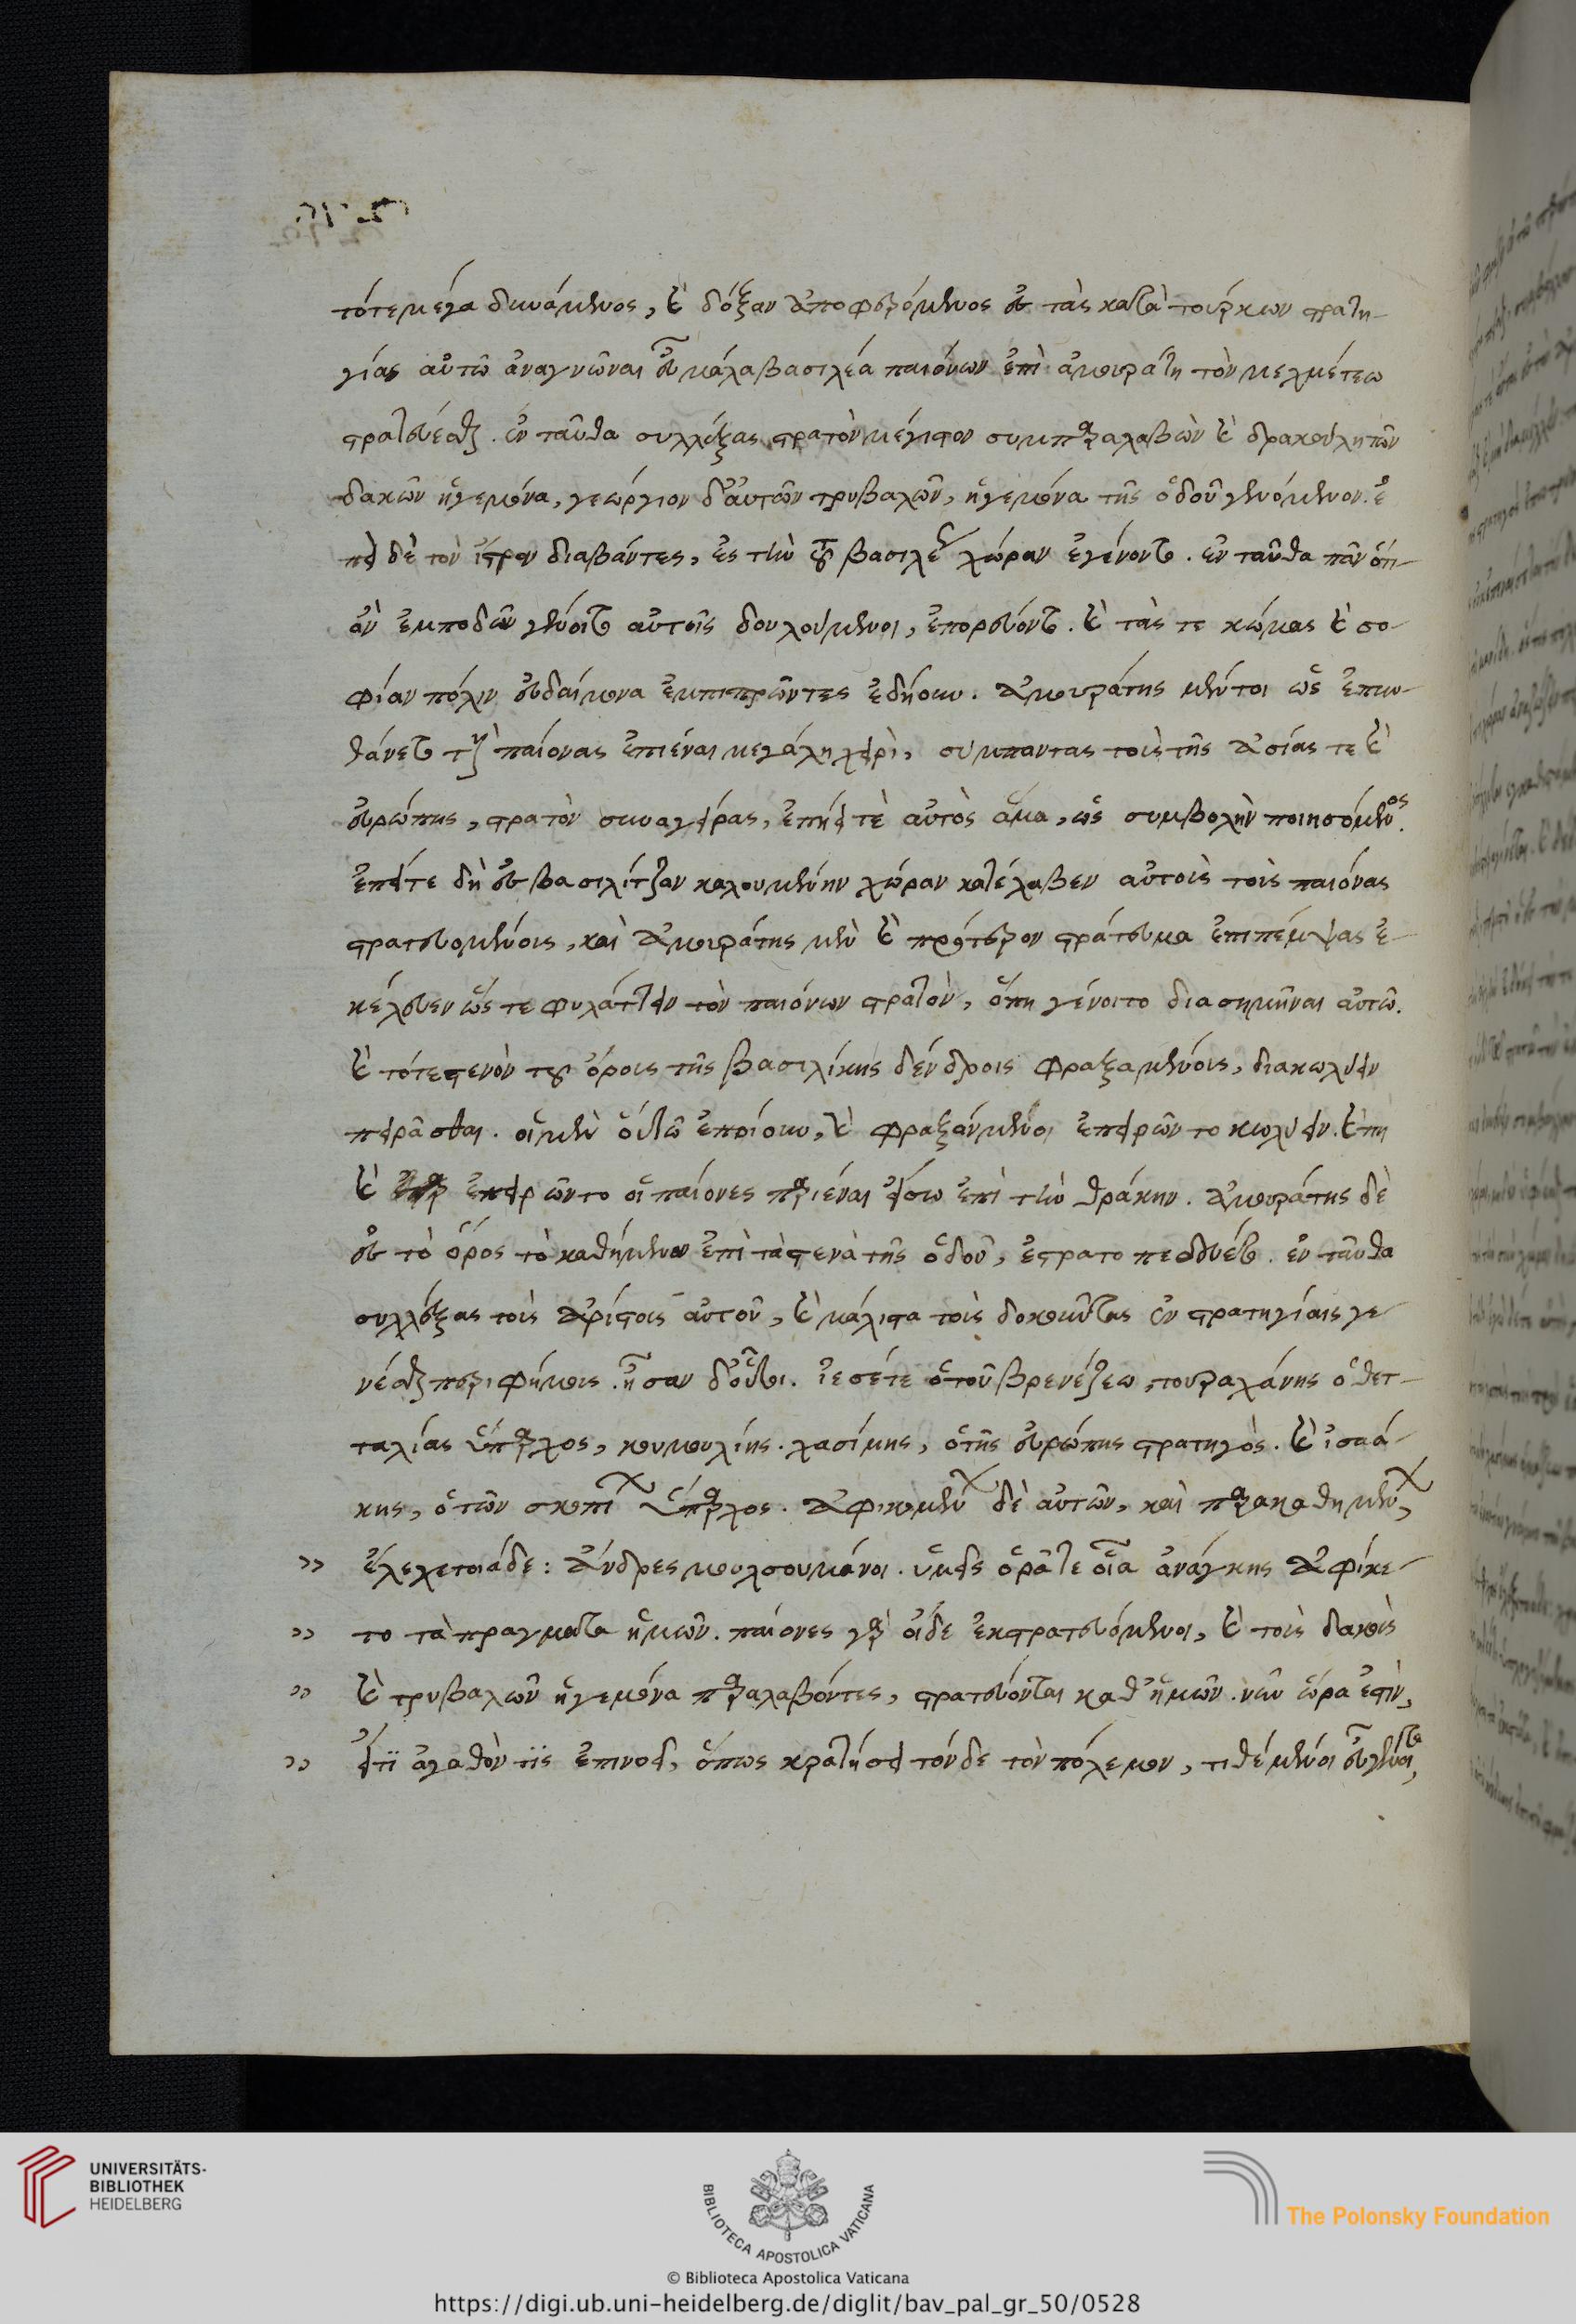 τότε μέγα δυνάμενος, καὶ δόξαν ἀποφερόμενος ἐς τὰς κατὰ τούρκων στρατη-
γίας αὐτῶ ἀναγνῶναι βασιλέα παιόνων ἐπὶ ἀμουράτη τὸν μεχμέτεω
στρατεύεσθαι. ἐνταῦθα συλλέξας στρατὸν μέγιστον συμπαραλαβὼν καὶ δρακούλη τῶν
δακῶν ἡγεμόνα, γεώργιον δ' αὐτῶν τριβαλῶν, ἡγεμόνα τῆς ὁδοῦ γενόμενον. ἐ
πεὶ δὲ τὸν ἴστρον διαβάντες, ἐς τὴν τοῦ βασιλέως χώραν ἐγένοντο. ἐνταῦθα πᾶν ὅτι
ἂν ἐμποδὼν γένοιτο αὐτοῖς δουλούμενοι, ἐπορεύοντο. καὶ τάς τε κώμας καὶ σο-
φίαν πόλιν εὐδαίμονα ἐμπιπρῶντες ἐδήουν. Ἀμουράτης μέντοι ὡς ἐπυν-
θάνετο τοὺς παίονας ἐπιέναι μεγάλη χειρὶ, σύμπαντας τοὺς τῆς Ἀσίας τε καὶ
εὐρώπης, στρατὸν συναγείρας, ἐπήει τὲ αὐτὸς ἅμα, ὡς συμβολὴν ποιησόμενος.
ἐπείτε δὴ ἐς βασιλίτζαν καλουμένην χώραν κατέλαβεν αὐτοὺς τοὺς παιόνας
στρατευομένους, καὶ Ἀμουράτης μὲν καὶ πρότερον στράτευμα ἐπιπέμψας ἐ-
κέλευεν ὥς τε φυλάττειν τὸν παιόνων στρατὸν, ὅπη γένοιτο διασημῆναι αὐτῶ.
καὶ τότε στενὸν τοῦ ὄρους τῆς βασιλίκης δένδροις φραξαμένους, διακωλύειν
πειρᾶσθαι. οἱ μὲν οὕτω ἐποίουν, καὶ φραξάμενοι ἐπειρῶντο κωλύειν. ἐπεὶ
καὶ ἐπειρῶντο οἱ παίονες παριέναι εἴσω ἐπὶ τὴν θράκην. Ἀμουράτης δὲ
ἐς τὸ ὄρος τὸ καθήμενον ἐπὶ τὰ στενὰ τῆς ὁδοῦ, ἐστρατοπεδεύετο. ἐνταῦθα
συλλέξας τοὺς Ἀρίστους αὐτοῦ, καὶ μάλιστα τοὺς δοκοῦντας ἐν στρατηγίαις γε
νέσθαι περιφήμους. ἦσαν δὲ οὗτοι. ἰεσέτε ὁ τοῦ βρενέζεω, τουραχάνης ὁ θετ-
ταλίας ὕπαρχος, κουμουλίης. χασίμης, ὁ τῆς εὐρώπης στρατηγὸς. καὶ ἰσαά-
κης, ὁ τῶν σκοπίων ὕπαρχος. Ἀφικομένων δὲ αὐτῶν, καὶ παρακαθημένων,
» ἔλεγε τοιάδε: Ἄνδρες μουλσουμάνοι. ὑμεῖς ὁρᾶτε οἷα ἀνάγκης Ἀφίκε-
» το τὰ πράγματα ἡμῶν. παίονες γὰρ οἵδε ἐκστρατευόμενοι, καὶ τοὺς δακοὺς
» καὶ τριβαλῶν ἡγεμόνα παραλαβόντες, στρατεύονται καθ' ἡμῶν. νῦν ὥρα ἐστὶν,
» εἴ τι ἀγαθὸν τὶς ἐπινοεῖ, ὅπως κρατήσει τόνδε τὸν πόλεμον, τιθέμενοι
UNIVERSITÄTS-
BIBLIOTHEK
HEIDELBERG
BIBLIOTECA APOSTOLICA VATICANA
© Biblioteca Apostolica Vaticana
The Polonsky Foundation
https://digi.ub.uni-heidelberg.de/diglit/bav_pal_gr_50/0528